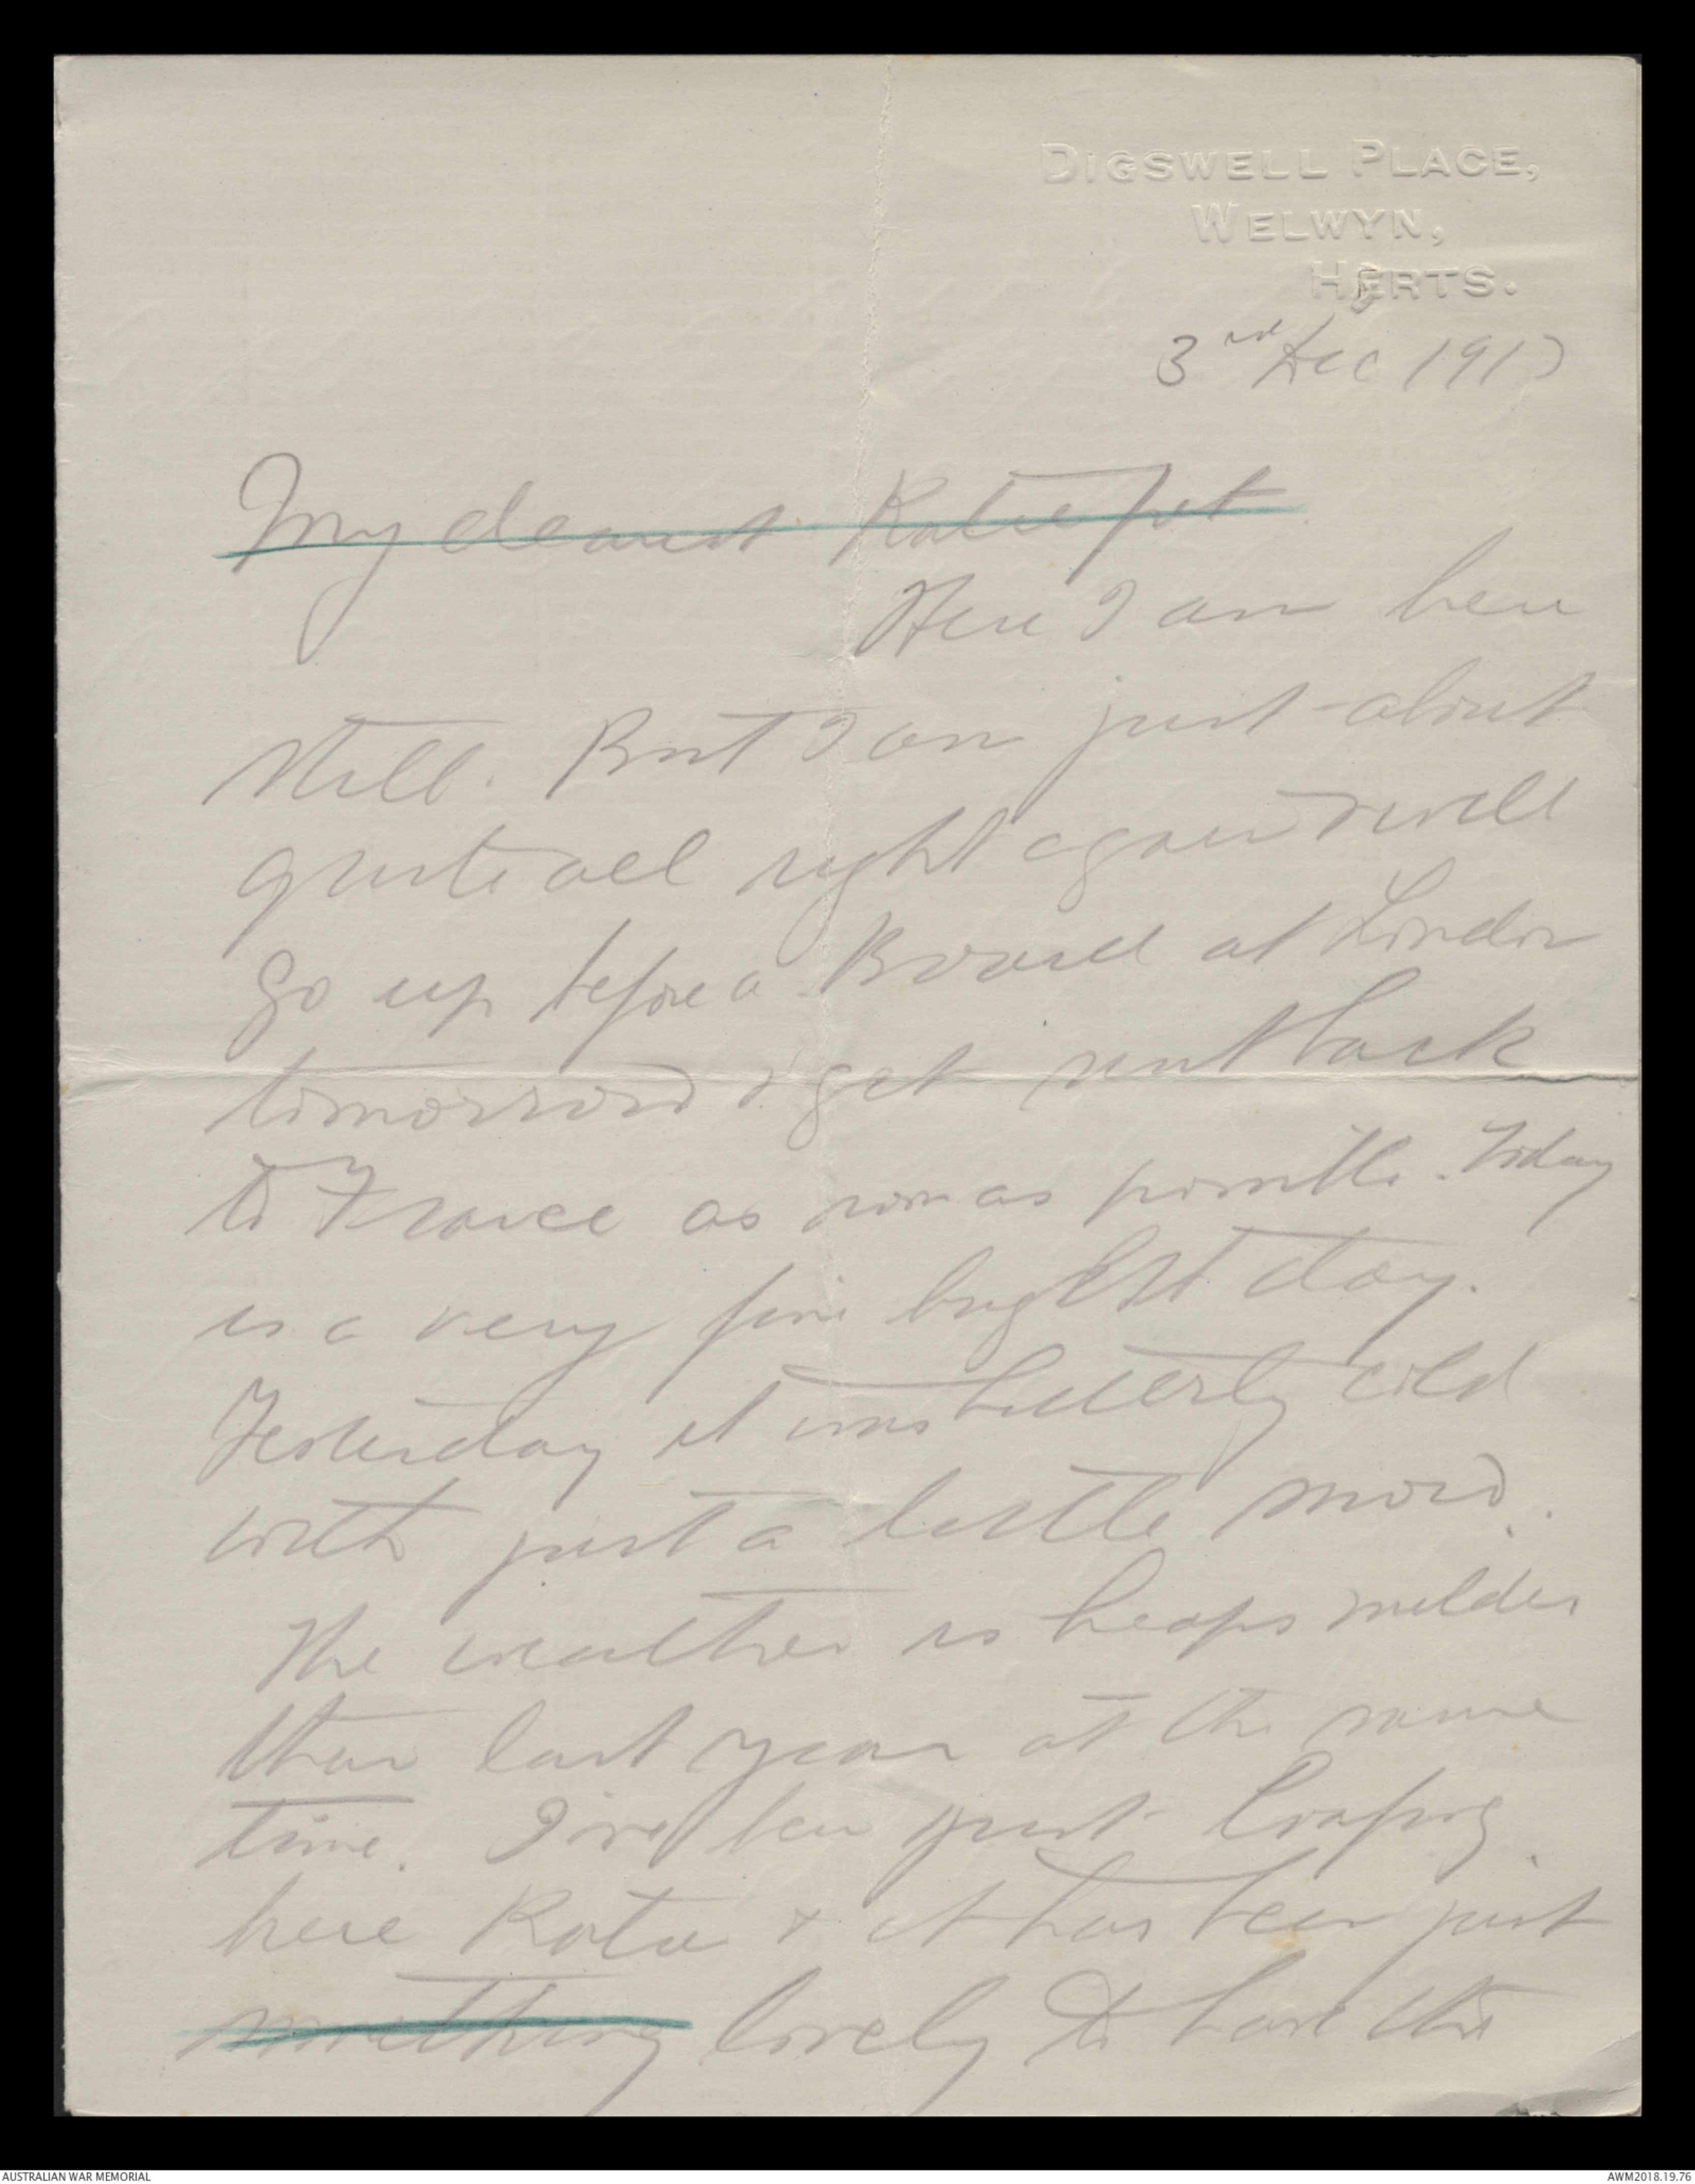 DIGSWELL PLACE,
WELWYN,
HERTS.
3rd Dec 1917
My dearest Katie pet
Here I am here
still. But I am just about
quite all right again & will
go up before a Board at London
tomorrow & get sent back
to France as soon as possible. Today
is a very fine bright day.
Yesterday it was bitterly cold
with just a little snow.
The weather is heaps milder
than last year at the same
time. I've been just loafing
here Katie & it has been just
something lovely to have the
AUSTRALIAN WAR MEMORIAL
AWM2018.19.76